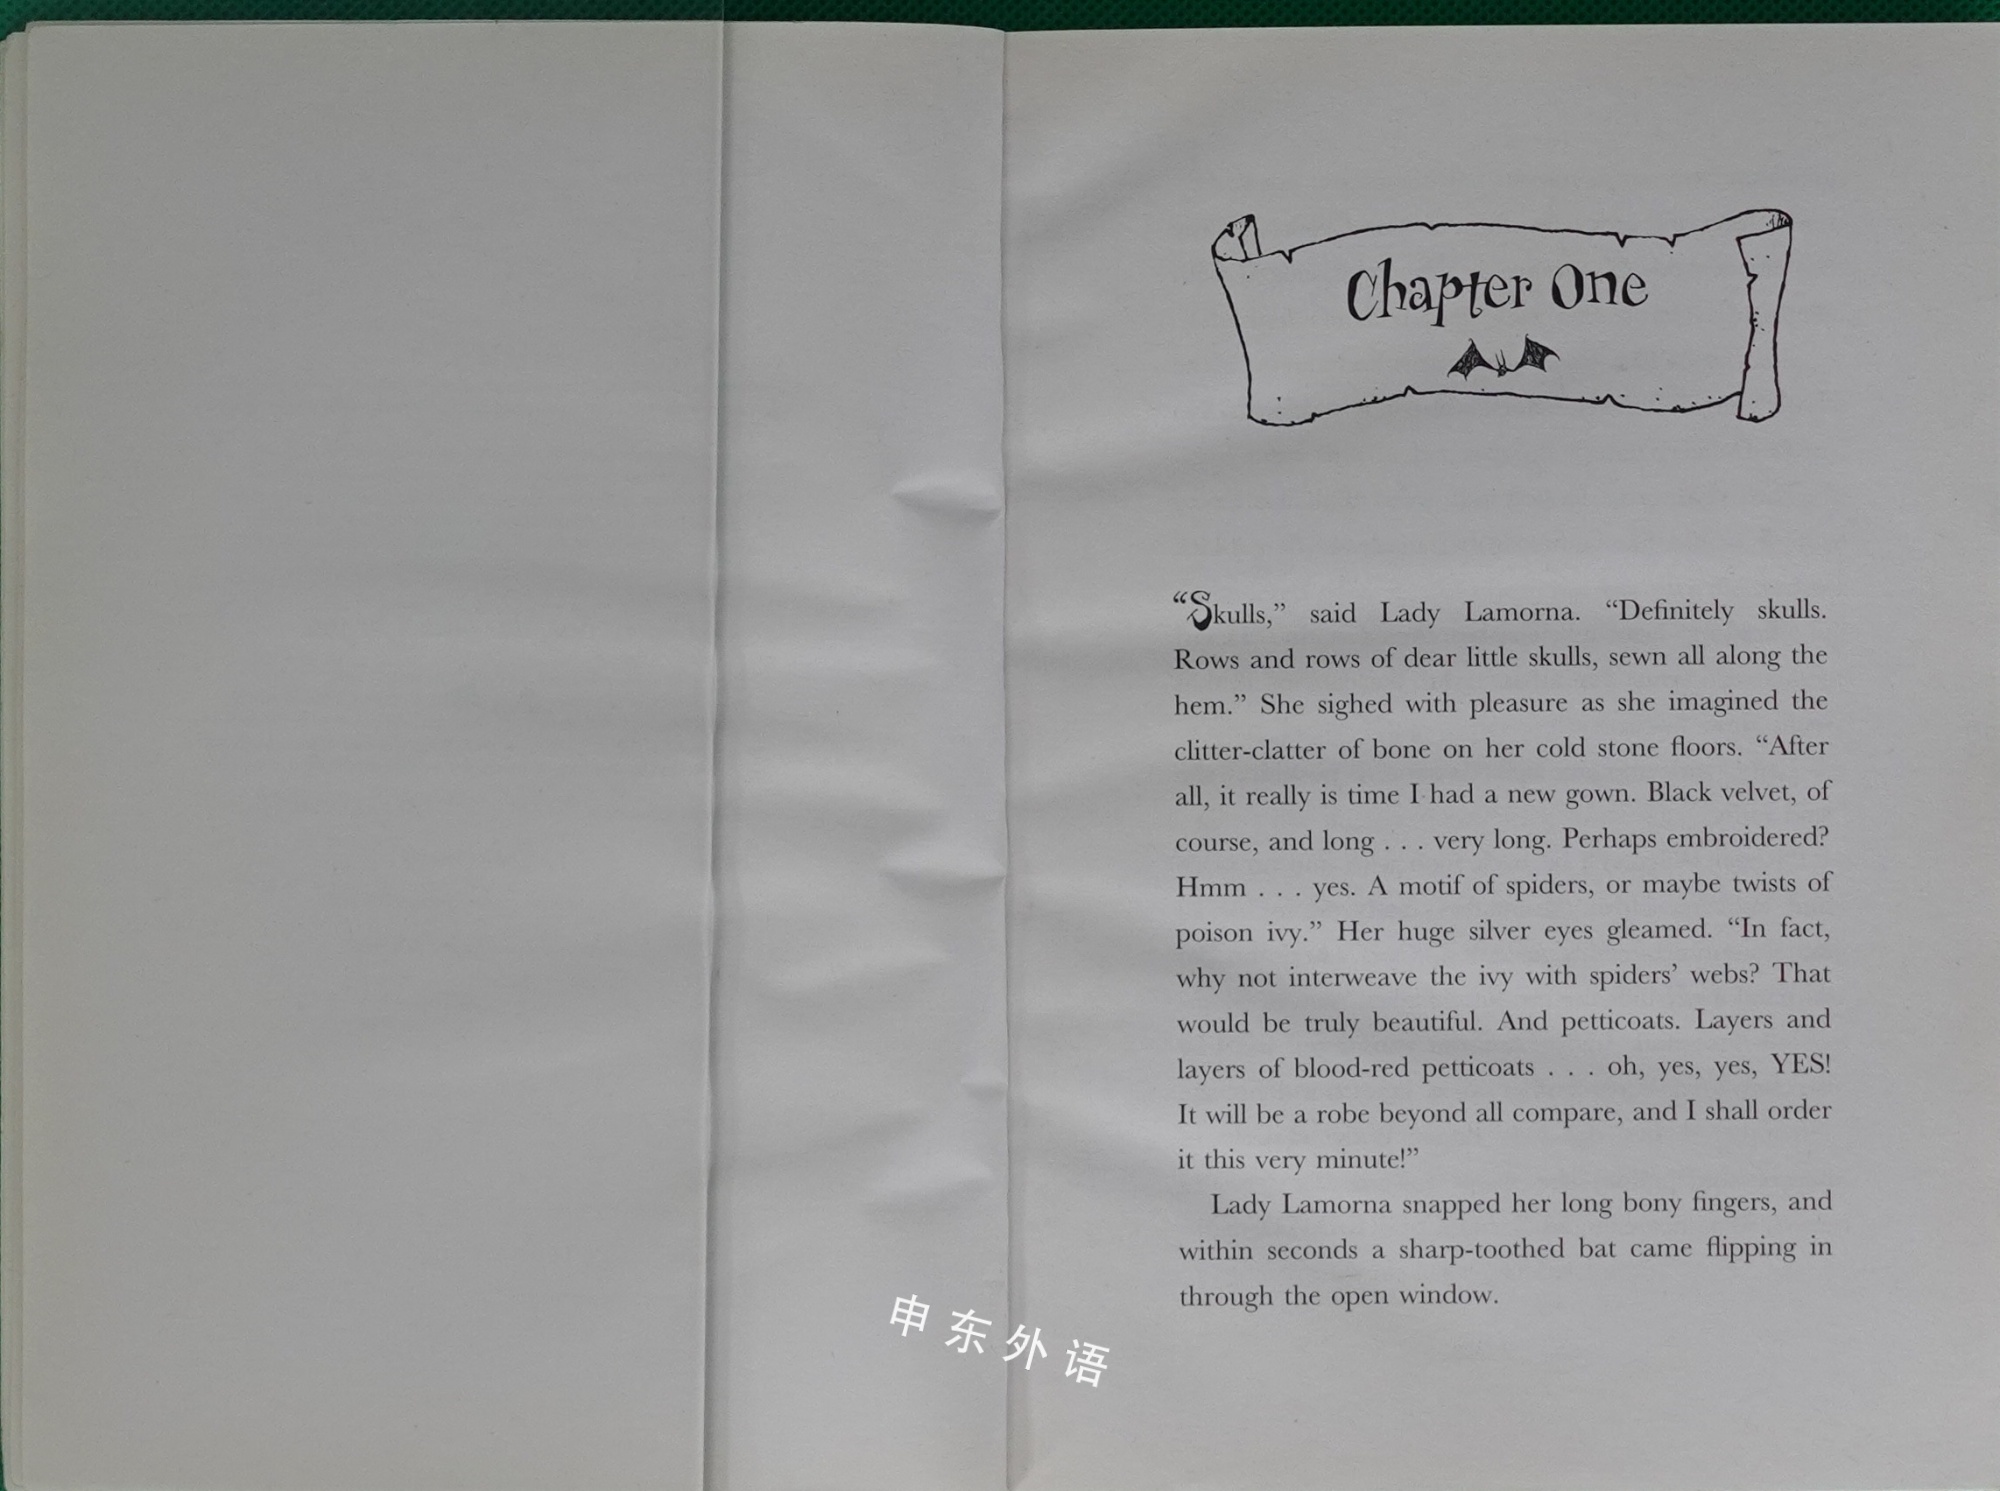 Chapter One
“Skulls,” said Lady Lamorna. “Definitely skulls.
Rows and rows of dear little skulls, sewn all along the
hem.” She sighed with pleasure as she imagined the
clitter-clatter of bone on her cold stone floors. “After
all, it really is time I had a new gown. Black velvet, of
course, and long . . . very long. Perhaps embroidered?
Hmm . . . yes. A motif of spiders, or maybe twists of
poison ivy.” Her huge silver eyes gleamed. “In fact,
why not interweave the ivy with spiders’ webs? That
would be truly beautiful. And petticoats. Layers and
layers of blood-red petticoats . . . oh, yes, yes, YES!
It will be a robe beyond all compare, and I shall order
it this very minute!”
Lady Lamorna snapped her long bony fingers, and
within seconds a sharp-toothed bat came flipping in
through the open window.
申东外语